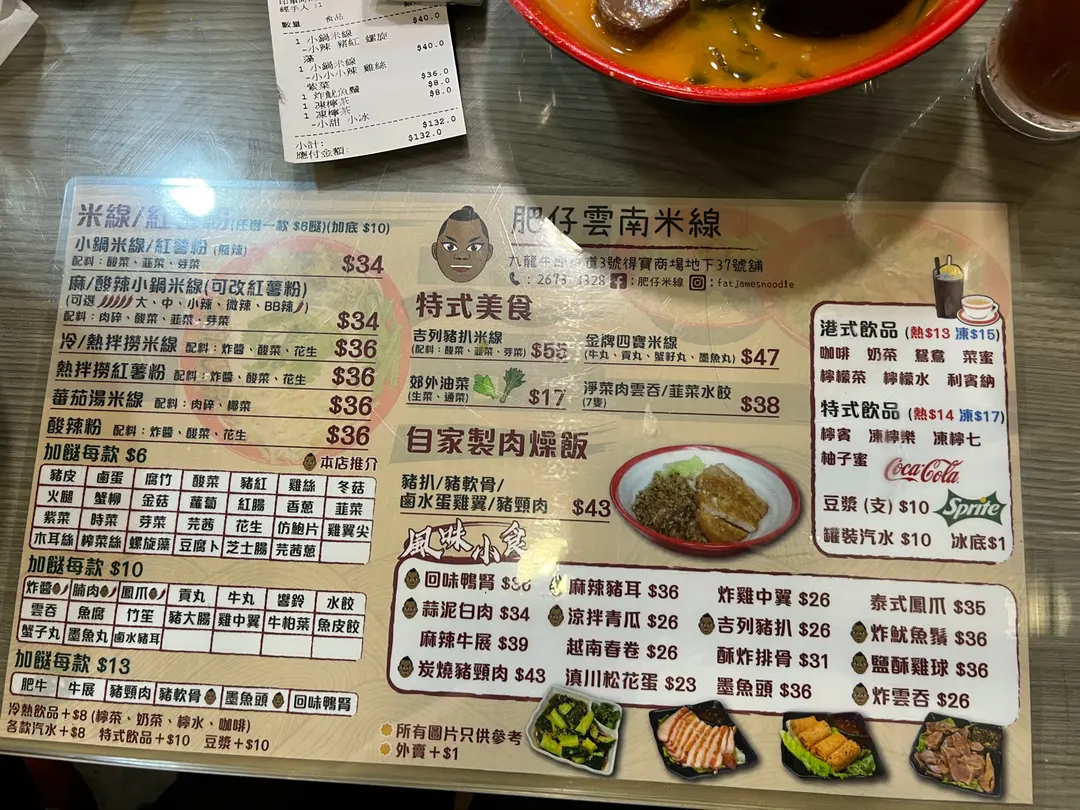 數量 食品
$40.0
1 小鍋米線
-小辣 豬紅 螺旋
藻
$40.0
1 小鍋米線
-小小小辣 雞絲
紫菜
$36.0
1 炸魷魚鬚
$8.0
1 凍檸茶
$8.0
1 凍檸茶
-小甜 小冰
小計: $132.0
應付金額: $132.0
米線/紅 (任選一款 $6餸)(加底 $10)
小鍋米線/紅薯粉 (無辣)
配料:酸菜、韮菜、芽菜 $34
麻/酸辣小鍋米線(可改紅薯粉)
(可選 大、中、小辣、微辣、BB辣)
配料:肉碎、酸菜、韮菜、芽菜 $34
冷/熱拌撈米線 配料:炸醬、酸菜、花生 $36
熱拌撈紅薯粉 配料:炸醬、酸菜、花生 $36
蕃茄湯米線 配料:肉碎、椰菜 $36
酸辣粉 配料:炸醬、酸菜、花生 $36
加餸每款 $6
本店推介
豬皮 鹵蛋 腐竹 酸菜 豬紅 雞絲 冬菇
火腿 蟹柳 金菇 蘿蔔 紅腸 香蔥 韮菜
紫菜 時菜 芽菜 芫茜 花生 仿鮑片 雞翼尖
木耳絲 榨菜絲 螺旋藻 豆腐卜 芝士腸 芫茜蔥
加餸每款 $10
炸醬 腩肉 鳳爪 貢丸 牛丸 響鈴 水餃
雲吞 魚腐 竹笙 豬大腸 雞中翼 牛柏葉 魚皮餃
蟹子丸 墨魚丸 鹵水豬耳
加餸每款 $13
肥牛 牛展 豬頸肉 豬軟骨 墨魚頭 回味鴨腎
冷熱飲品+$8 (檸茶、奶茶、檸水、咖啡)
各款汽水+$8 特式飲品+$10 豆漿+$10
肥仔雲南米線
道3號得寶商場地下37號舖
: 2673 1328 :肥仔米線 : fatjamesnoodle
特式美食
吉列豬扒米線
(配料:酸菜、韮菜、芽菜) $55
金牌四寶米線
(牛丸、貢丸、蟹籽丸、墨魚丸) $47
郊外油菜
(生菜、通菜) $17
淨菜肉雲吞/韮菜水餃
(7隻) $38
自家製肉燥飯
豬扒/豬軟骨/
鹵水蛋雞翼/豬頸肉 $43
風味小食
回味鴨腎 $36 麻辣豬耳 $36 炸雞中翼 $26 泰式鳳爪 $35
蒜泥白肉 $34 涼拌青瓜 $26 吉列豬扒 $26 炸魷魚鬚 $36
麻辣牛展 $39 越南春卷 $26 酥炸排骨 $31 鹽酥雞球 $36
炭燒豬頸肉 $43 滇川松花蛋 $23 墨魚頭 $36 炸雲吞 $26
所有圖片只供參考
外賣+$1
港式飲品 (熱$13 凍$15)
咖啡 奶茶 鴛鴦 菜蜜
檸檬茶 檸檬水 利賓納
特式飲品 (熱$14 凍$17)
檸賓 凍檸樂 凍檸七
柚子蜜 Coca-Cola
豆漿 (支) $10 Sprite
罐裝汽水 $10 冰底$1